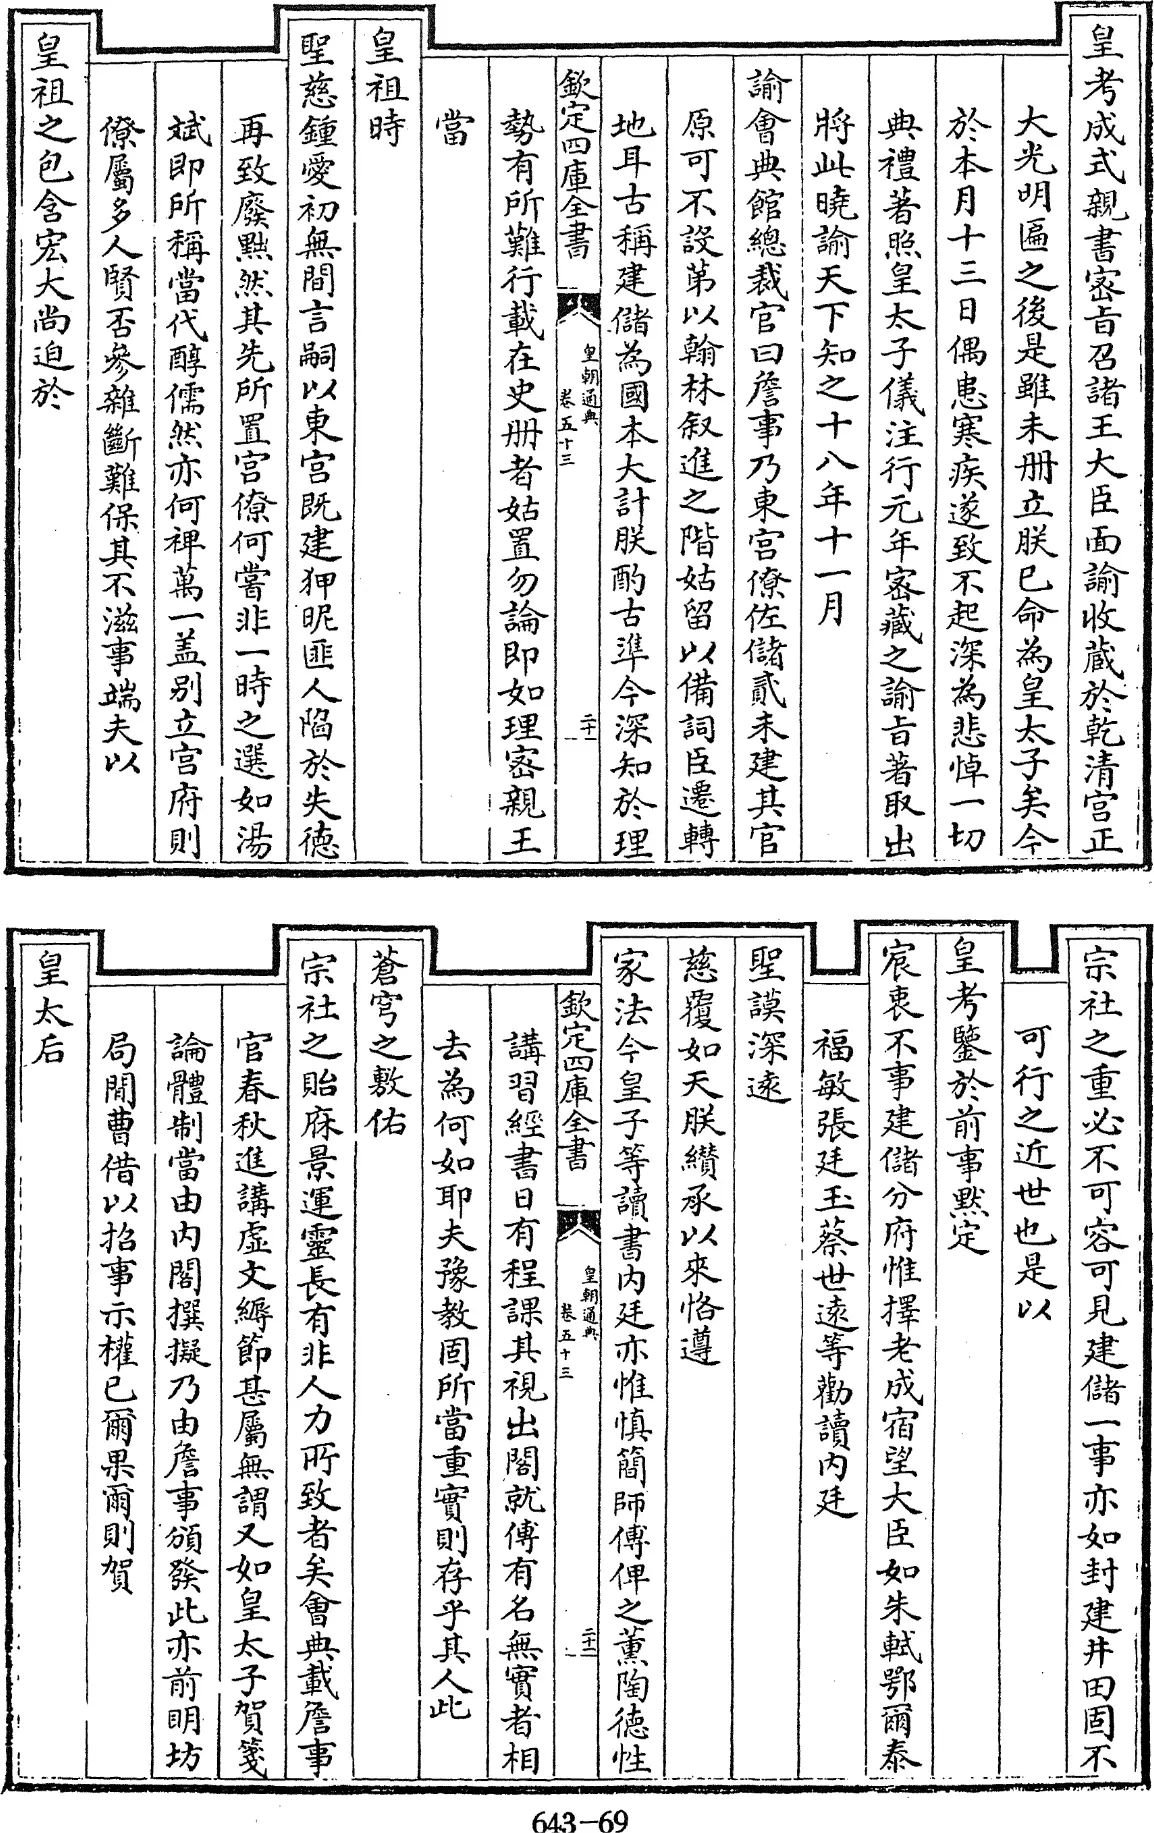 皇考成式親書密旨召諸王大臣面諭收藏於乾清宮正
大光明匾之後是雖未册立朕已命為皇太子矣今
於本月十三日偶患寒疾遂致不起深為悲悼一切
典禮著照皇太子儀注行元年密藏之諭旨著取出
將此曉諭天下知之十八年十一月
諭會典館總裁官曰詹事乃東宮僚佐儲貳未建其官
原可不設第以翰林叙進之階姑留以備詞臣遷轉
地耳古稱建儲為國本大計朕酌古準今深知於理
欽定四庫全書
皇朝通典
卷五十三
二十一
勢有所難行載在史册者姑置勿論即如理密親王
當
皇祖時
聖慈鍾愛初無間言嗣以東宮既建狎昵匪人陷於失德
再致廢黜然其先所置宮僚何嘗非一時之選如湯
斌即所稱當代醇儒然亦何裨萬一盖别立宮府則
僚屬多人賢否參雜斷難保其不滋事端夫以
皇祖之包含宏大尚迫於
宗社之重必不可容可見建儲一事亦如封建井田固不
可行之近世也是以
皇考鑒於前事黙定
宸衷不事建儲分府惟擇老成宿望大臣如朱軾鄂爾泰
福敏張廷玉蔡世遠等勸讀内廷
聖謨深遠
慈覆如天朕纘承以來恪遵
家法今皇子等讀書内廷亦惟慎簡師傅俾之薰陶德性
欽定四庫全書
皇朝通典
卷五十三
二十二
講習經書日有程課其視出閣就傅有名無實者相
去為何如耶夫豫教固所當重實則存乎其人此
蒼穹之敷佑
宗社之貽庥景運靈長有非人力所致者矣會典載詹事
官春秋進講虚文縟節甚屬無謂又如皇太子賀箋
論體制當由内閣撰擬乃由詹事頒發此亦前明坊
局閒曹借以招事示權已爾果爾則賀
皇太后
643-69